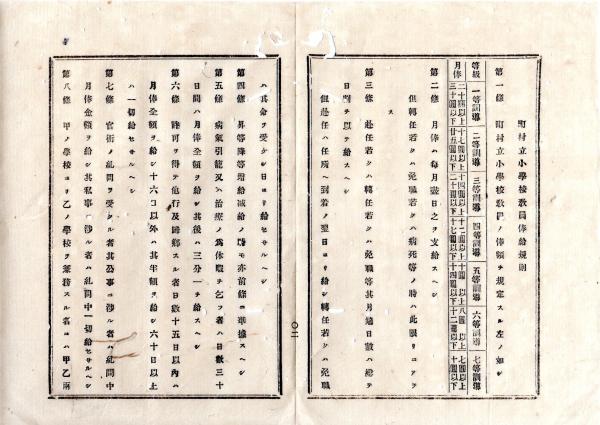 町村立小學校敎員俸給規則
第一條 町村立小學校敎員ノ俸額ヲ規定スル左ノ如シ
等級 一等訓導 二等訓導 三等訓導 四等訓導 五等訓導 六等訓導 七等訓導
月俸 二十四圓以上三十圓以下 十七圓以上廿五圓以下 十四圓以上二十圓以下 十二圓以上十七圓以下 十圓以上十四圓以下 八圓以上十二圓以下 七圓以上十圓以下
第二條 月俸ハ毎月
日之ヲ支給スヘシ
但轉任若クハ免職若クハ病死等ノ時ハ此限リニアラス
第三條 赴任若クハ轉任若クハ免職等其月過日數ハ總テ
日割ヲ以テ給スヘシ
但赴任ハ任所ヘ到着ノ翌日ヨリ給シ轉任若クハ免職
ハ其命ヲ受クル日ヨリ給セサルヘシ
第四條 昇等降等增給減給ノ時モ亦前條ニ準據スヘシ
第五條 病氣引籠又ハ治療ノ爲休暇ヲ乞フ者ハ日數三十
日間ハ月俸全額ヲ給シ其後ハ三分一ヲ給スヘシ
第六條 許可ヲ得テ他行及歸鄕スル者日數十五日以內ハ
月俸全額ヲ給シ十六日以外ハ其半額ヲ給シ六十日以上
ハ一切給セサルヘシ
第七條 官衙ノ糺問ヲ受クル者其公事ニ涉ル者ハ糺問中
月俸金額ヲ給シ其私事ニ涉ル者ハ糺問中一切給セサルヘシ
第八條 甲ノ學校ヨリ乙ノ學校ヲ兼務スル者ハ甲乙兩
〇二